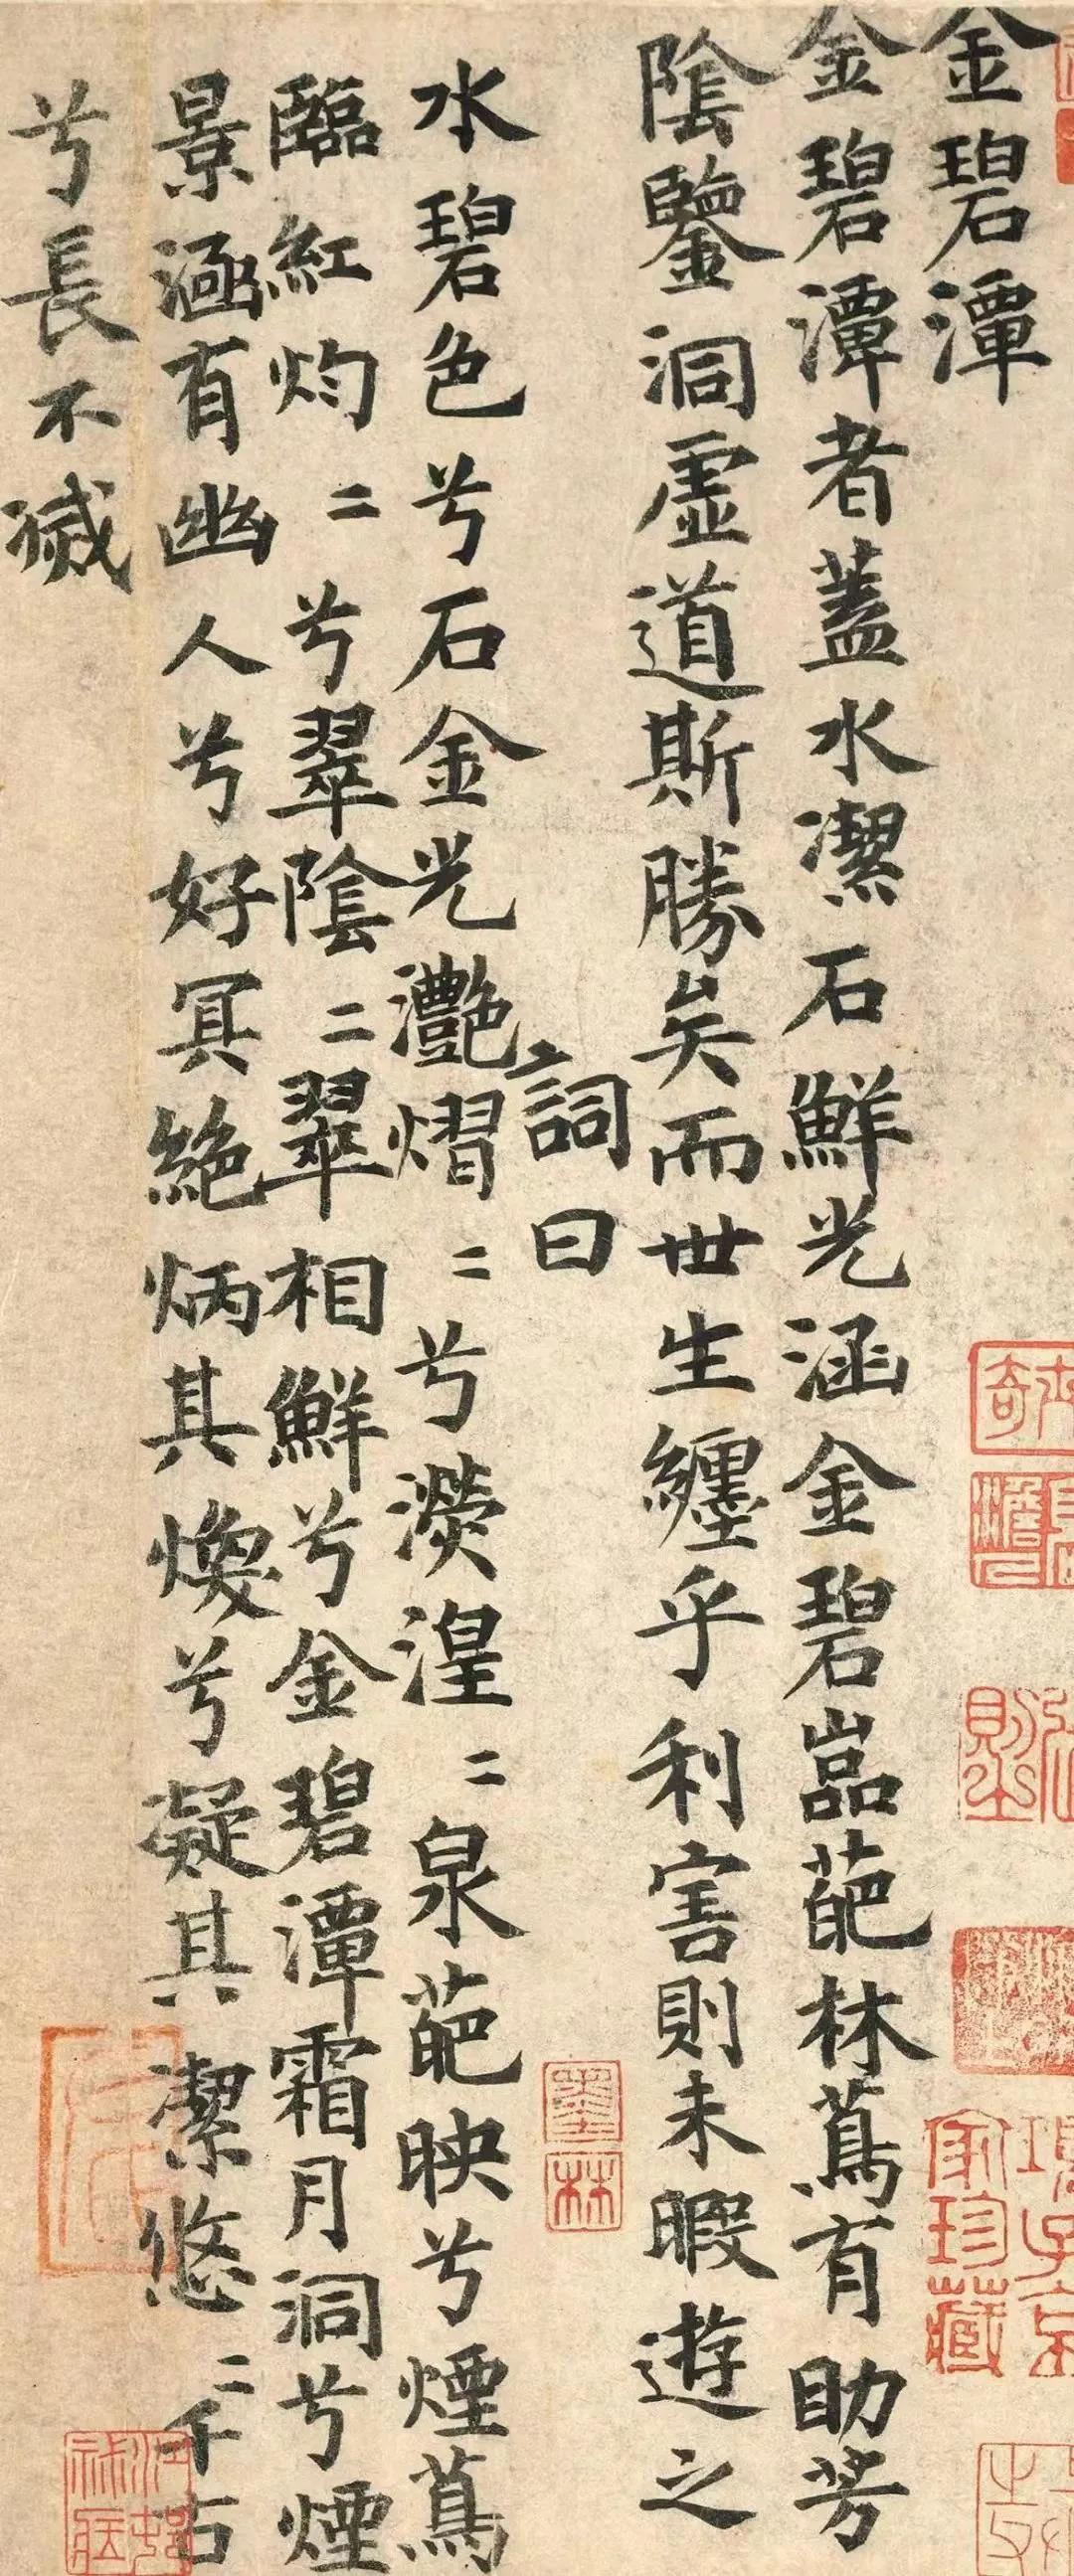 金碧潭
金碧潭者蓋水潔石鮮光涵金碧嵓葩林蔦有助芳
陰鑒洞虛道斯勝矣而世生纏乎利害則未暇遊之
詞曰
水碧色兮石金光灩熠二兮濙湟二泉葩映兮煙蔦
臨紅灼二兮翠陰二翠相鮮兮金碧潭霜月洞兮煙
景涵有幽人兮好冥絕炳其煥兮凝其潔悠二千古
兮長不滅
墨
林
家珍藏